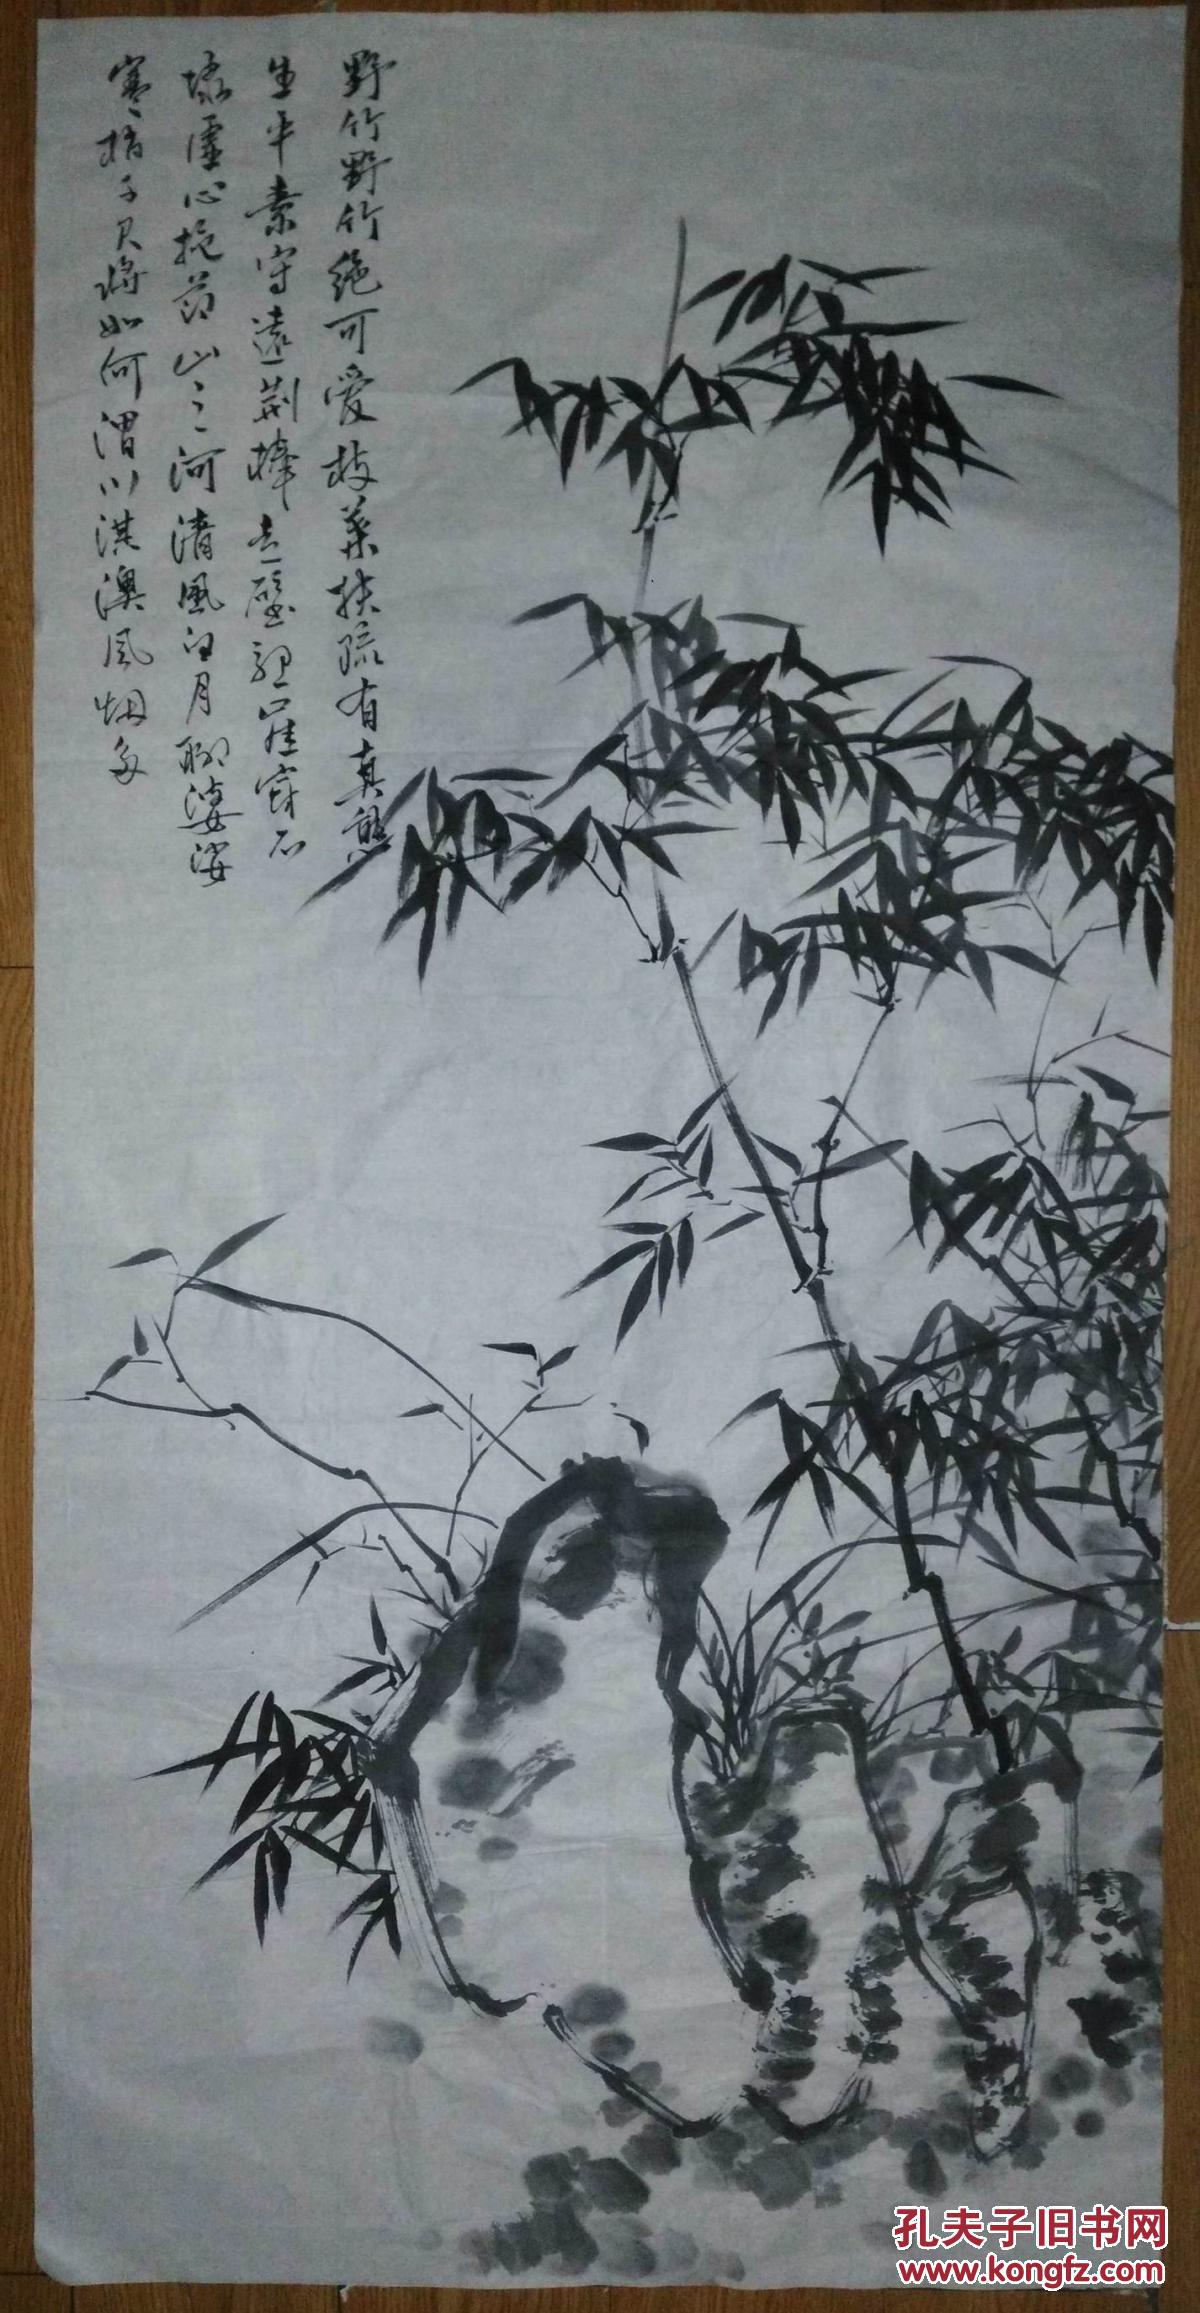 野竹野竹绝可爱枝葉扶疏有真態
生平素守遠荆榛走壁記崖穿石
埭虛心抱节山之河清風白月聊婆娑
寒梢千尺將如何渭川淇澳風烟多
孔夫子旧书网
www.kongfz.com